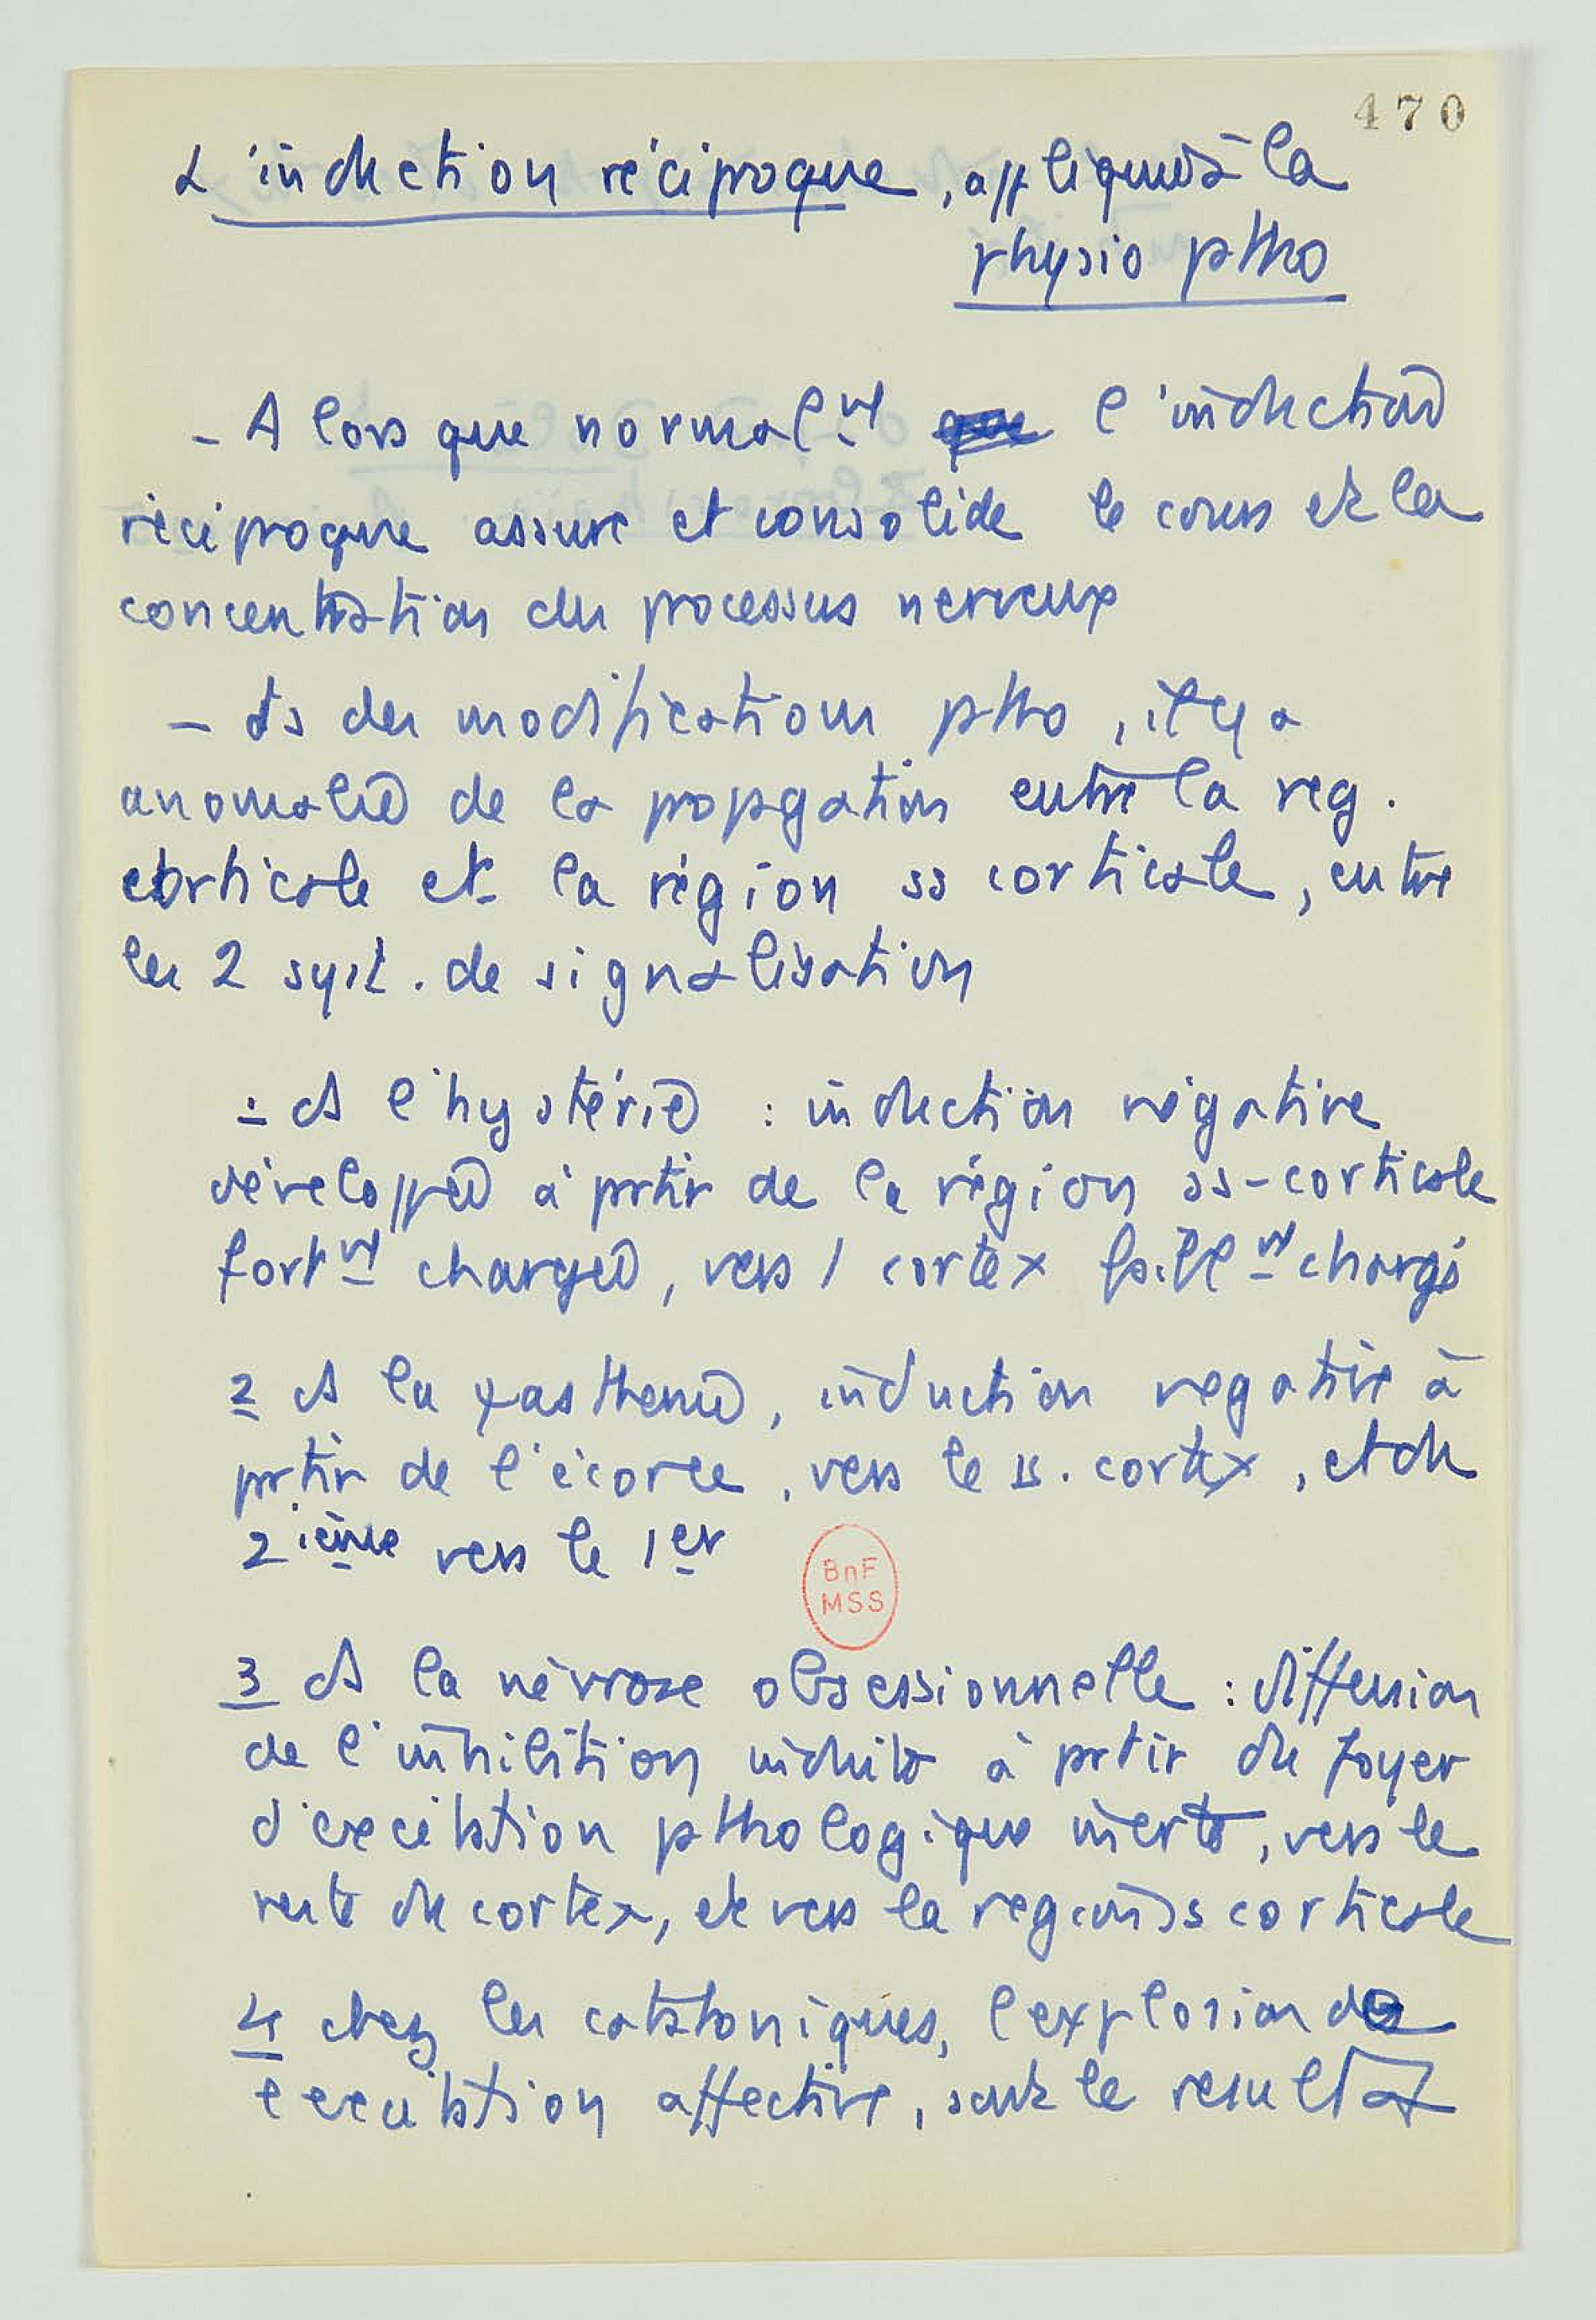 470
L'induction réciproque, appliquée à la
physio ptho
- Alors que normalnt que l'induction
réciproque assure et consolide le cours et la
concentration du processus nerveux
- ds des modifications ptho, il y a
anomalie de la propgation entre la reg.
corticale et la région ss corticale, entre
les 2 syst. de signalisation
1 ds l'hystérie : induction négative
développée à prtir de la région ss-corticale
fortnt chargée, vers 1 cortex faiblnt chargé
2 ds la ψasthenie, induction negative à
prtir de l'écorce, vers le ss. cortex, et du
2ième vers le 1er
BnF
MSS
3 ds la névrose obsessionnelle : diffusion
de l'inhibition induite à prtir du foyer
d'excitation pthologique inerte, vers le
reste du cortex, et vers la region ss corticale
4 chez les catatoniques, l'explosion de
l'excitation affective, soit le resultat